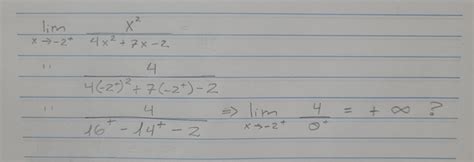 lim x→-2⁺ x² / 4x²+7x-2
" 4 / 4(-2⁺)²+7(-2⁺)-2
" 4 / 16⁺-14⁺-2 ⇒ lim x→-2⁺ 4 / 0⁺ = +∞ ?